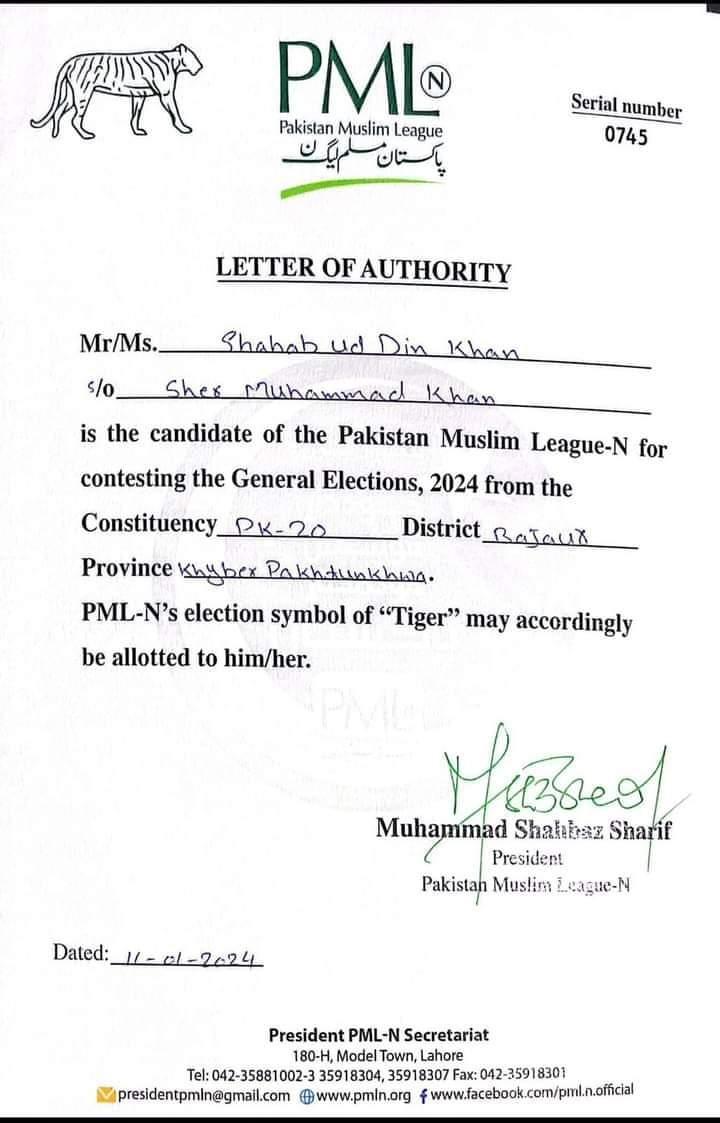 PML N
Pakistan Muslim League
پاکستان مسلم لیگ ن
Serial number
0745
LETTER OF AUTHORITY
Mr/Ms. Shahab ud Din Khan
S/o Sher Muhammad Khan
is the candidate of the Pakistan Muslim League-N for
contesting the General Elections, 2024 from the
Constituency PK-20 District Bajaur
Province Khyber Pakhtunkhwa.
PML-N's election symbol of “Tiger” may accordingly
be allotted to him/her.
PML
Muhammad Shahbaz Sharif
President
Pakistan Muslim League-N
Dated: 11-01-2024
President PML-N Secretariat
180-H, Model Town, Lahore
Tel: 042-35881002-3 35918304, 35918307 Fax: 042-35918301
presidentpmln@gmail.com www.pmln.org www.facebook.com/pml.n.official